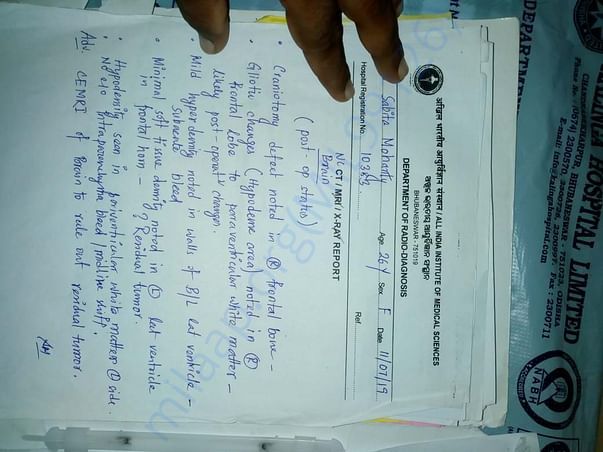 अखिल भारतीय आयुर्विज्ञान संस्थान / ALL INDIA INSTITUTE OF MEDICAL SCIENCES
BHUBANESWAR - 751019
DEPARTMENT OF RADIO-DIAGNOSIS
Sabita Mohanty Age 26Y Sex F Date 11/07/19
Hospital Registration No. Ref.
CT / MRI / X-RAY REPORT
Brain
(post-op status)
• Craniotomy defect noted in Ⓡ frontal bone –
• Gliotic changes (Hypodense area) noted in Ⓡ
frontal lobe to periventricular white matter –
likely post-operative changes.
• Mild hyperdensity noted in walls of B/L lat ventricle –
subacute bleed
• Minimal soft tissue density noted in Ⓛ lat ventricle
in frontal horn – ? Residual tumor.
• Hypodensity seen in periventricular white matter Ⓛ side.
• N/e/o intraparenchymal bleed / midline shift.
Adv: CEMRI of Brain to rule out residual tumor.
HOSPITAL LIMITED
CHANDRASEKHARPUR, BHUBANESWAR
Phone No.: (0674)
E-mail: info@kalingahospital.com
DEPARTMENT
NABH
milaap.org